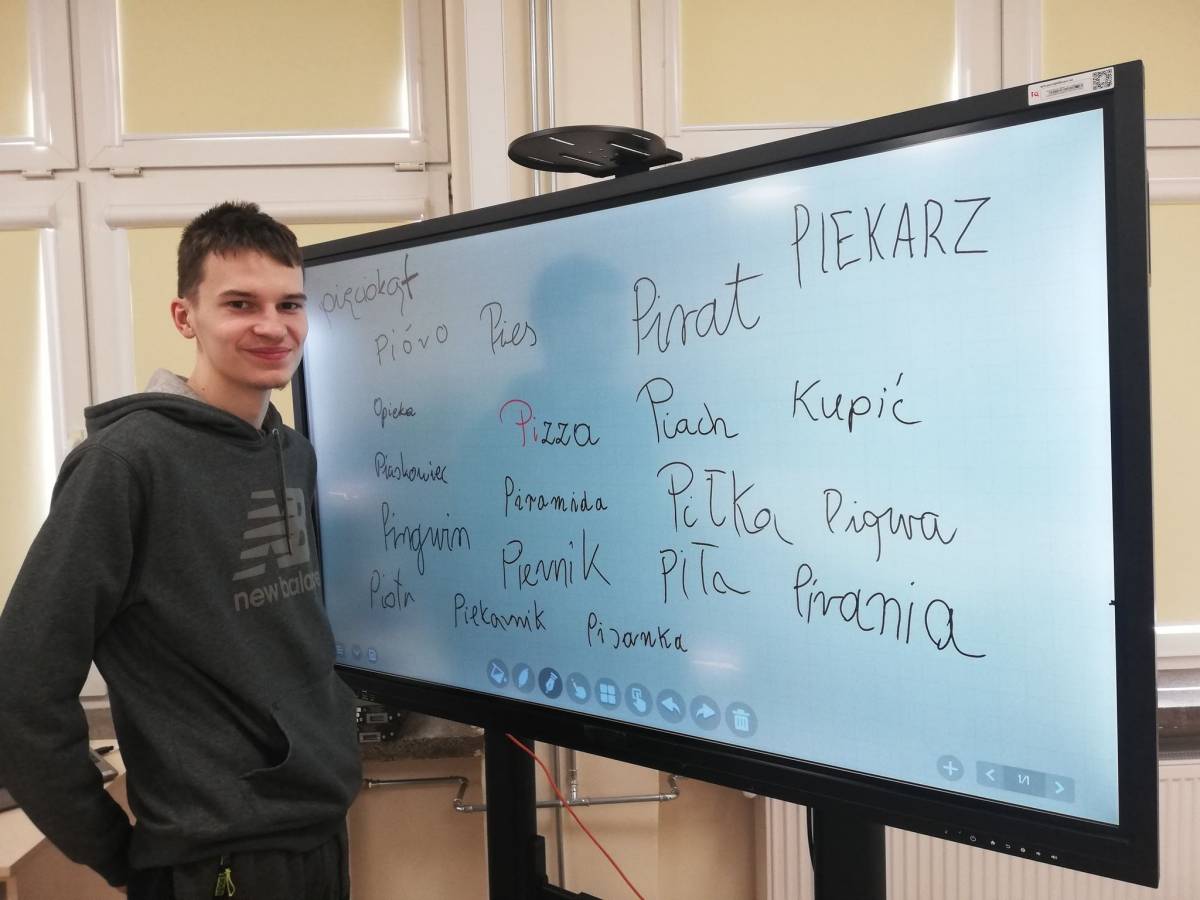 PIEKARZ
pięciokąt
Pióro Pies Pirat
Opieka Pizza Piach Kupić
Piaskowiec Piramida Piłka Pigwa
Pingwin Piernik Piła Pirania
Piotr Piekarnik Pisanka
1/1
new balance